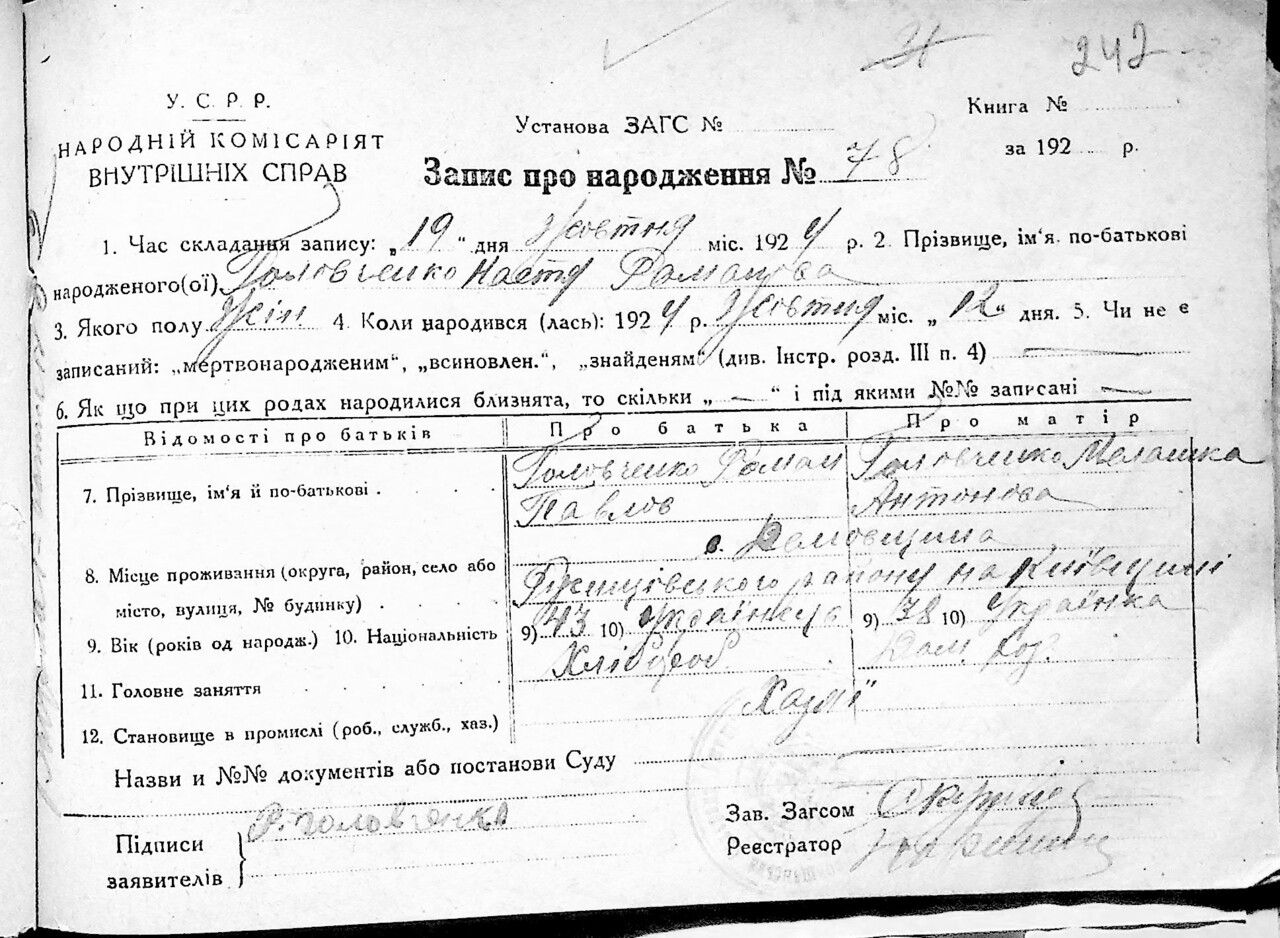 242
У. С. Р. Р.
НАРОДНІЙ КОМІСАРІЯТ
ВНУТРІШНІХ СПРАВ
Установа ЗАГС №
Книга №
за 192 р.
Запис про народження № 78
1. Час складання запису: „19" дня Жовтня міс. 1924 р. 2. Прізвище, ім'я, по-батькові
народженого(ої) Головченко Настя Романова
3. Якого полу Жін 4. Коли народився (лась): 1924 р. Жовтня міс. „12" дня. 5. Чи не є
записаний: „мертвонародженим", „всиновлен.", „знайденям" (див. Інстр. розд. III п. 4) —
6. Як що при цих родах народилися близнята, то скільки „ — " і під якими №№ записані —
Відомості про батьків Про батька Про матір
7. Прізвище, ім'я й по-батькові . Головченко Роман Павлов Головченко Мелашка Антонова
8. Місце проживання (округа, район, село або
місто, вулиця, № будинку) . с.
Ржищівського району на Київщині
9. Вік (років од народж.) 10. Національність 9) 43 10) Українець 9) 38 10) Українка
11. Головне заняття Хлібороб Дом. хоз.
12. Становище в промислі (роб., служб., хаз.)
Назви и №№ документів або постанови Суду —
Підписи
заявителів
Р. Головченко
Зав. Загсом
Реєстратор